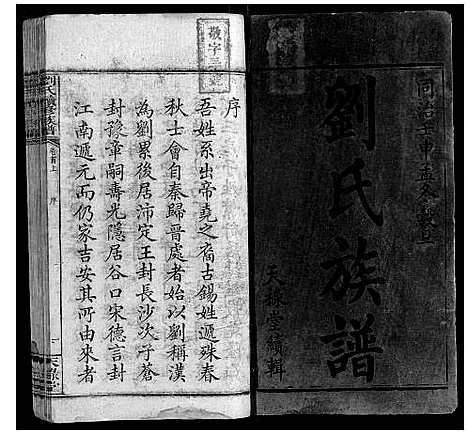 同治壬申孟冬
劉氏族譜
天祿堂續輯
敬字
序
吾姓系出帝堯之裔古錫姓遞殊春
秋士會自秦歸晉處者始以劉稱漢
為劉累後居沛定王封長沙次子蒼
封豫章嗣壽光隱居谷口宋德言封
江南遞元而仍家吉安其所由來者
劉氏續修族譜
卷首上 序
一
天祿堂